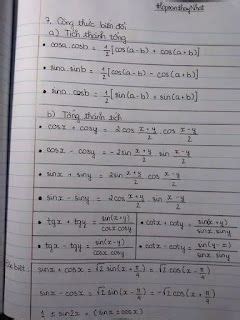 7. Công thức biến đổi
a) Tích thành tổng
• cosa.cosb = 1/2 [cos(a-b) + cos(a+b)]
• sina.sinb = 1/2 [cos(a-b) - cos(a+b)]
• sina.cosb = 1/2 [sin(a-b) + sin(a+b)]
b) Tổng thành tích
• cosx + cosy = 2cos (x+y)/2 . cos (x-y)/2
• cosx - cosy = -2sin (x+y)/2 . sin (x-y)/2
• sinx + siny = 2sin (x+y)/2 cos (x-y)/2
• sinx - siny = 2cos (x+y)/2 . sin (x-y)/2
• tgx + tgy = sin(x+y)/cosx cosy • cotx + coty = sin(x+y)/sinx siny
• tgx - tgy = sin(x-y)/cosx cosy • cotx - coty =
biệt: sinx + cosx = √2 sin(x + π/4) = √2 cos(x - π/4)
sinx - cosx = √2 sin(x - π/4) = -√2 cos(x + π/4)
1 ± sin2x = (sinx ± cosx)